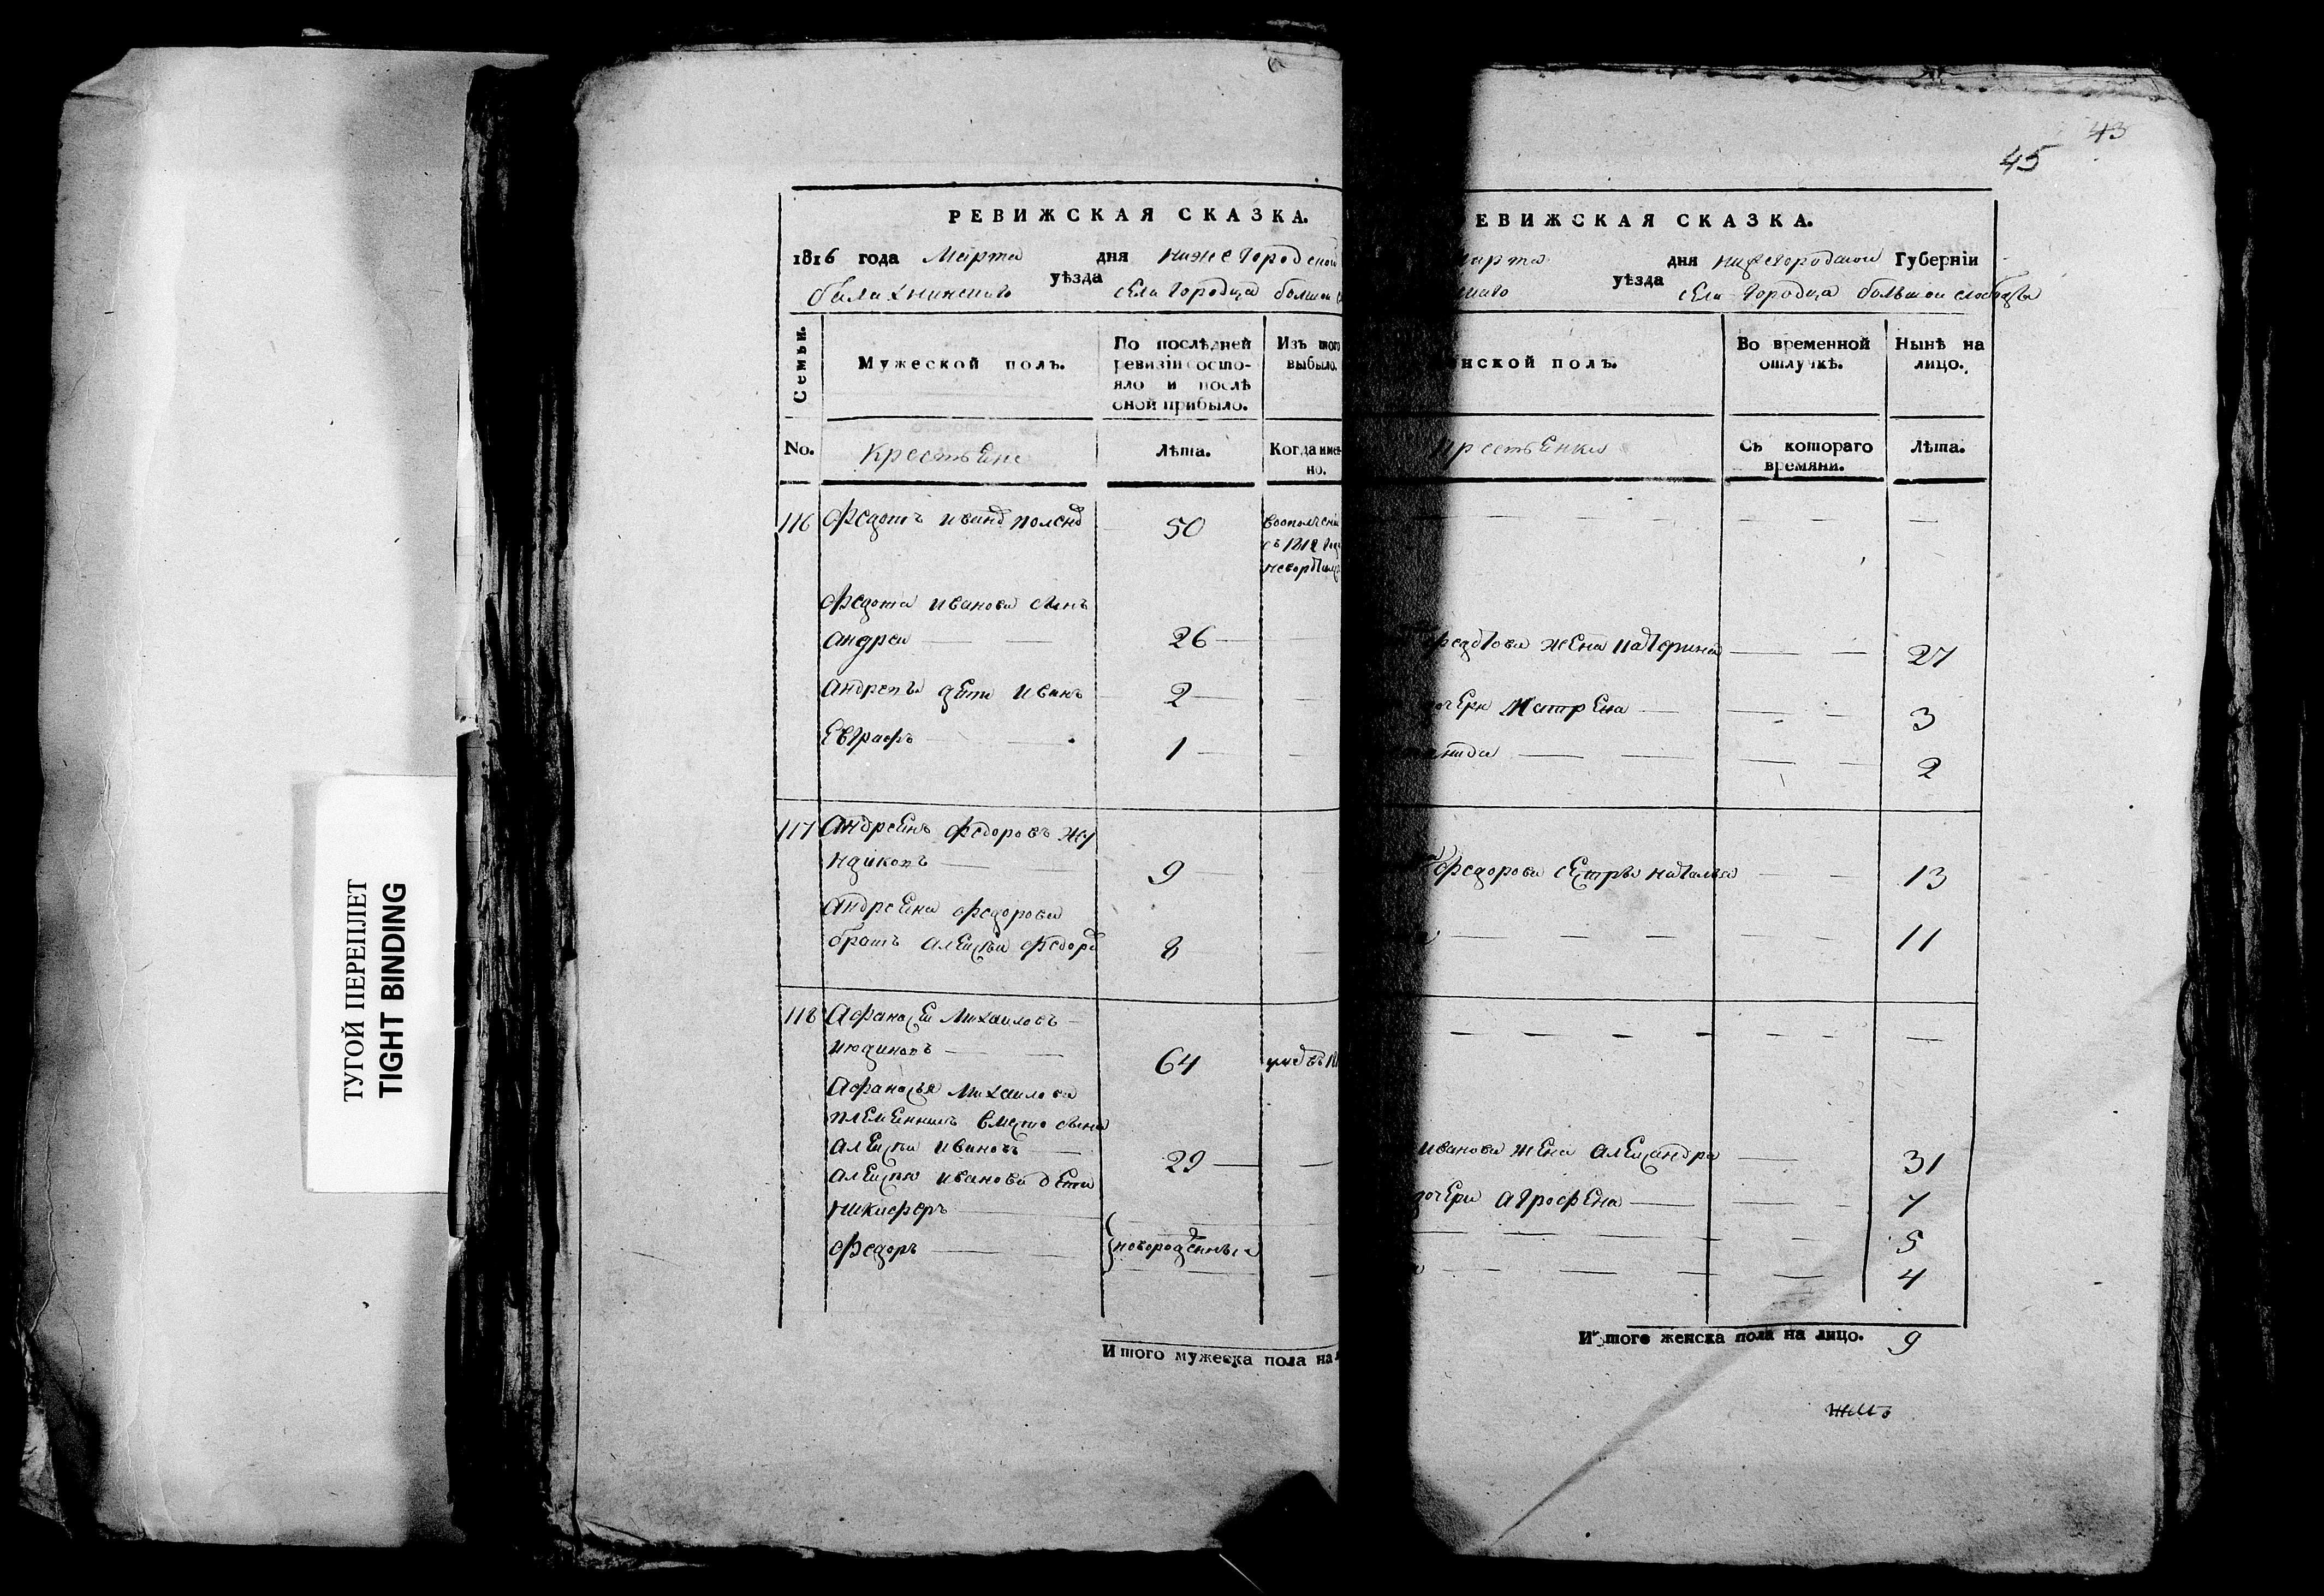 ТУГОЙ ПЕРЕПЛЕТ
TIGHT BINDING
РЕВИЖСКАЯ СКАЗКА.
1816 года Марта дня нижегородской
балахнинскаго уѣзда села городца большой
Семьи.
Мужеской полъ.
По послѣдней ревизіи состояло и послѣ оной прибыло.
Изъ того выбыло.
No.
крестьЕне
Лѣта.
Когда имен-
но.
116 Федотъ иванов 50
съ 1812
Федота иванова сынъ
андреи — — 26 —
андреевы дети иванъ 2 —
Евграфъ — — 1 —
117 Андреянъ Федоровъ
9 —
Андреяна Федорова
братъ алексеи Федоров 8
118 Афанасеи Михаиловъ —
июдинъ — — 64
Афанасья Михаилова
племенникъ вместо сына
алексеи ивановъ — 29 —
алексея иванова дети
никифоръ —
Федоръ — — новорожденныя
Итого мужеска пола на
43
45
ЕВИЖСКАЯ СКАЗКА.
марта дня нижегородской Губерніи
уѣзда села городца большой слободы
нской полъ.
Во временной отлучкѣ.
Нынѣ на лицо.
крестьЕнки
Съ котораго времяни.
Лѣта.
федотова жена катерина — — 27
дочери матрена — — — 3
— — — — 2
Федорова сестра наталья — — 13
— — — — — 11
иванова жена александра — 31
дочери агрофена — — — 7
— — — — — — 5
— — — — — 4
Итого женска пола на лицо. 9